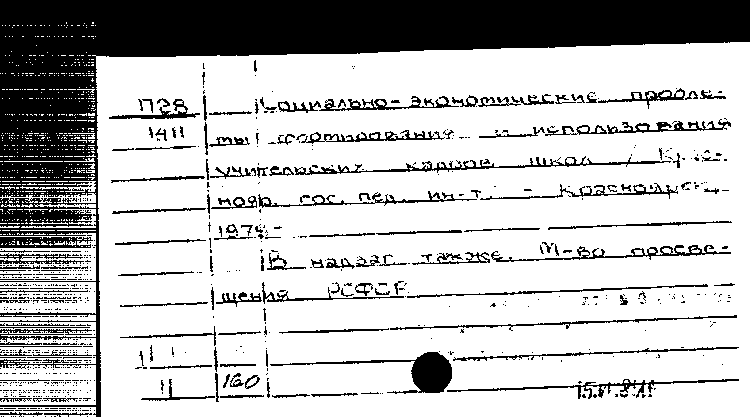 П28 Социально-экономические пробле-
1411 мы формирования и использования
учительских кадров школ / Крас-
нояр. гос. пед. ин-т. - Красноярск,
197
В надзаг. также: М-во просве-
щения РСФСР
160